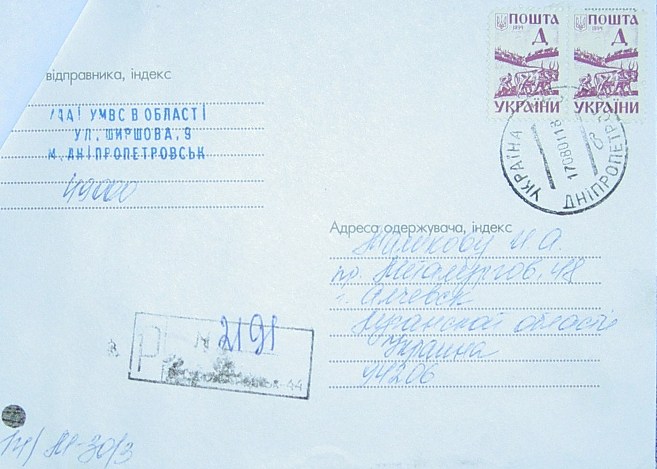 ПОШТА
1994
Д
УКРАЇНИ
ПОШТА
1994
Д
УКРАЇНИ
відправника, індекс
ДАІ УМВС В ОБЛАСТІ
УЛ. ШИРШОВА, 9
М. ДНІПРОПЕТРОВСЬК
49000
УКРАЇНА
17080118
ДНІПРОПЕТРО
Адреса одержувача, індекс
И. А.
пр. Металургов, 48
г. Алчевск
Луганской области
Украина
94206
Р
N 2191
44